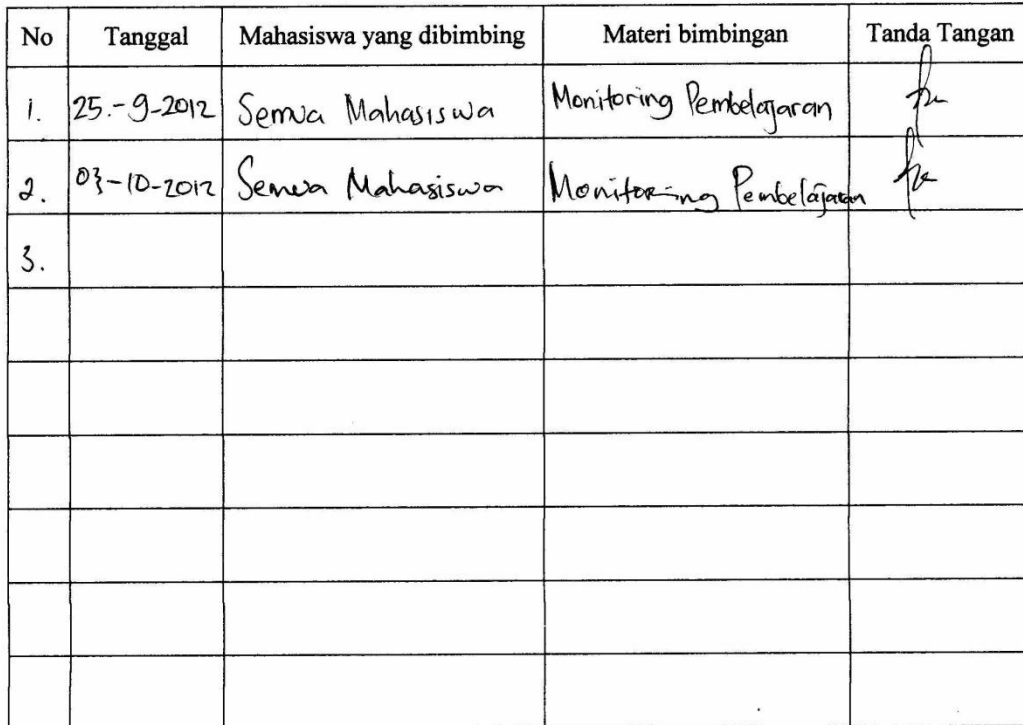 No Tanggal Mahasiswa yang dibimbing Materi bimbingan Tanda Tangan
1. 25.-9-2012 Semua Mahasiswa Monitoring Pembelajaran
2. 03-10-2012 Semua Mahasiswa Monitoring Pembelajaran
3.